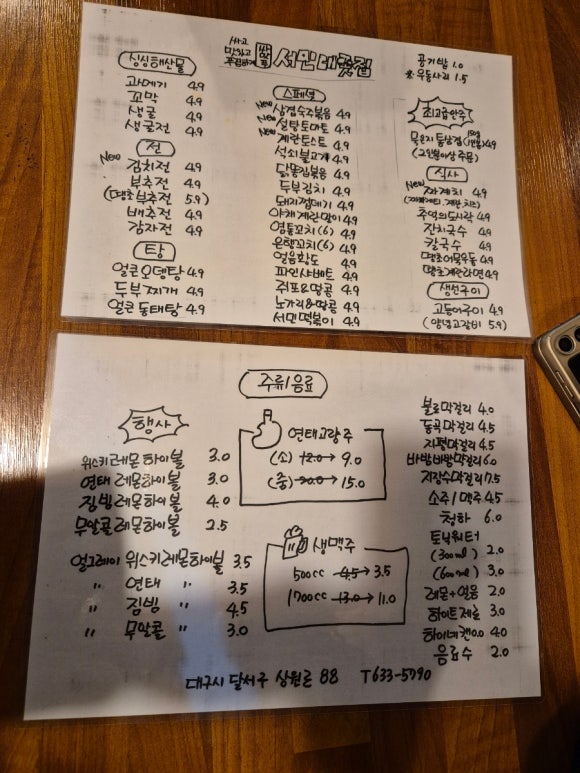 싸고
맛있고
푸짐하게
서민대폿집
공기밥 1.0
※우동사리 1.5
싱싱해산물
과메기 4.9
꼬막 4.9
생굴 4.9
생굴전 4.9
전
New 김치전 4.9
부추전 4.9
(땡초부추전 5.9)
배추전 4.9
감자전 4.9
탕
얼큰오뎅탕 4.9
두부찌개 4.9
얼큰동태탕 4.9
스페셜
New 삼겹숙주볶음 4.9
New 설탕토마토 4.9
New 계란토스트 4.9
석쇠불고기 4.9
닭똥집볶음 4.9
두부김치 4.9
돼지껍데기 4.9
야채계란말이 4.9
염통꼬치(6) 4.9
은행꼬치(6) 4.9
얼음황도 4.9
파인샤베트 4.9
쥐포&땅콩 4.9
노가리&땅콩 4.9
서민떡볶이 4.9
초고급안주
묵은지통삼겹 150g (1인분) 4.9
(2인분이상 주문)
식사
New 짜계치 4.9
(짜파게티, 계란, 치즈)
추억의도시락 4.9
잔치국수 4.9
칼국수 4.9
땡초어묵우동 4.9
땡초계란라면 4.9
생선구이
고등어구이 4.9
(양념고갈비 5.9)
주류/음료
행사
위스키레몬하이볼 3.0
연태레몬하이볼 3.0
짐빔레몬하이볼 4.0
무알콜레몬하이볼 2.5
얼그레이 위스키레몬하이볼 3.5
" 연태 " 3.5
" 짐빔 " 4.5
" 무알콜 " 3.0
연태고량주
(소) 12.0→9.0
(중) 20.0→15.0
생맥주
500cc 4.5→3.5
1700cc 13.0→11.0
불로막걸리 4.0
동곡막걸리 4.5
지평막걸리 4.5
바밤바밤막걸리 6.0
지장수막걸리 7.5
소주/맥주 4.5
청하 6.0
토닉워터
(300ml) 2.0
(600ml) 3.0
레몬+얼음 2.0
하이트제로 3.0
하이네켄0.0 4.0
음료수 2.0
대구시 달서구 상원로 88 T633-5790